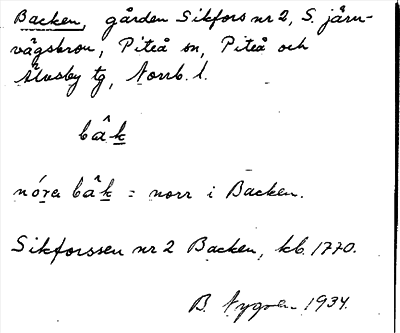 Backen, gården Sikfors nr 2, S. järn-
vägsbron, Piteå sn, Piteå och
Älvsby tg, Norrb. l.
bâk
nóra bâk = norr i Backen.
Sikforssen nr 2 Backen, kb. 1770.
B. Nygren 1934.